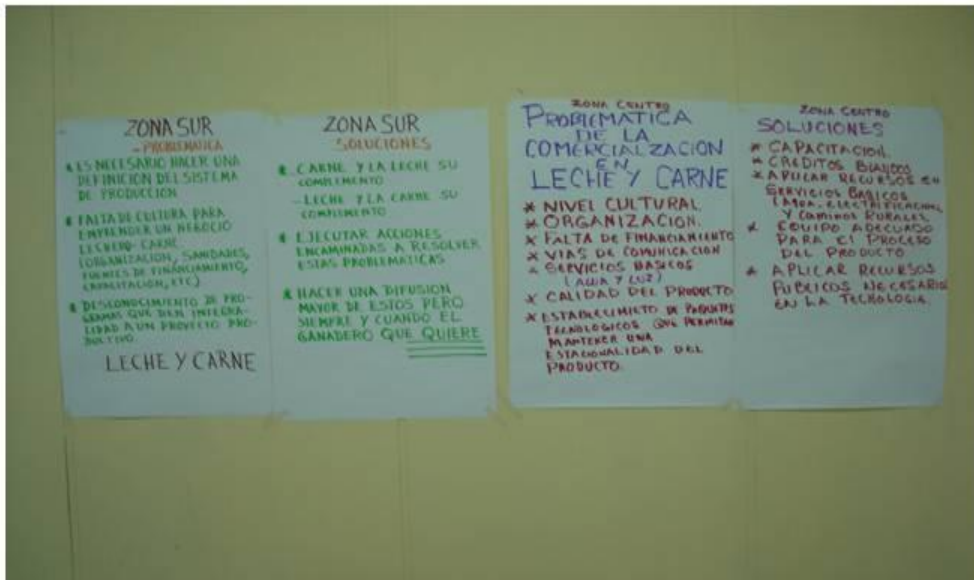 ZONA SUR
- PROBLEMATICA
* ES NECESARIO HACER UNA
DEFINICION DEL SISTEMA
DE PRODUCCION
* FALTA DE CULTURA PARA
EMPRENDER UN NEGOCIO
LECHERO- CARNE.
(ORGANIZACION, SANIDADES,
FUENTES DE FINANCIAMIENTO,
CAPACITACION, ETC)
* DESCONOCIMIENTO DE PRO-
GRAMAS QUE DEN INTEGRA-
LIDAD A UN PROYECTO PRO-
DUCTIVO.
LECHE Y CARNE
ZONA SUR
SOLUCIONES
* CARNE Y LA LECHE SU
COMPLEMENTO
- LECHE Y LA CARNE SU
COMPLEMENTO
* EJECUTAR ACCIONES
ENCAMINADAS A RESOLVER
ESTAS PROBLEMATICAS
* HACER UNA DIFUSION
MAYOR DE ESTOS PERO
SIEMPRE Y CUANDO EL
GANADERO QUE QUIERE
ZONA CENTRO
PROBLEMATICA
DE LA
COMERCIALZACION
EN
LECHE Y CARNE
* NIVEL CULTURAL.
* ORGANIZACION.
* FALTA DE FINANCIAMIENTO
* VIAS DE COMUNICACION
* SERVICIOS BASICOS
(AGUA Y LUZ)
* CALIDAD DEL PRODUCTO
* ESTABLECIMIETO DE
TECNOLOGICOS QUE PERMITAN
MANTENER UNA
ESTACIONALIDAD DEL
PRODUCTO.
ZONA CENTRO
SOLUCIONES
* CAPACITACION.
* CREDITOS BLANDOS
* APLICAR RECURSOS EN
SERVICIOS BASICOS
(AGUA, ELECTRIFICACION,
Y CAMINOS RURALES
* EQUIPO ADECUADO
PARA EL PROCESO
DEL PRODUCTO
* APLICAR RECURSOS
PUBLICOS NECESARIOS
EN LA TECNOLOGIA.